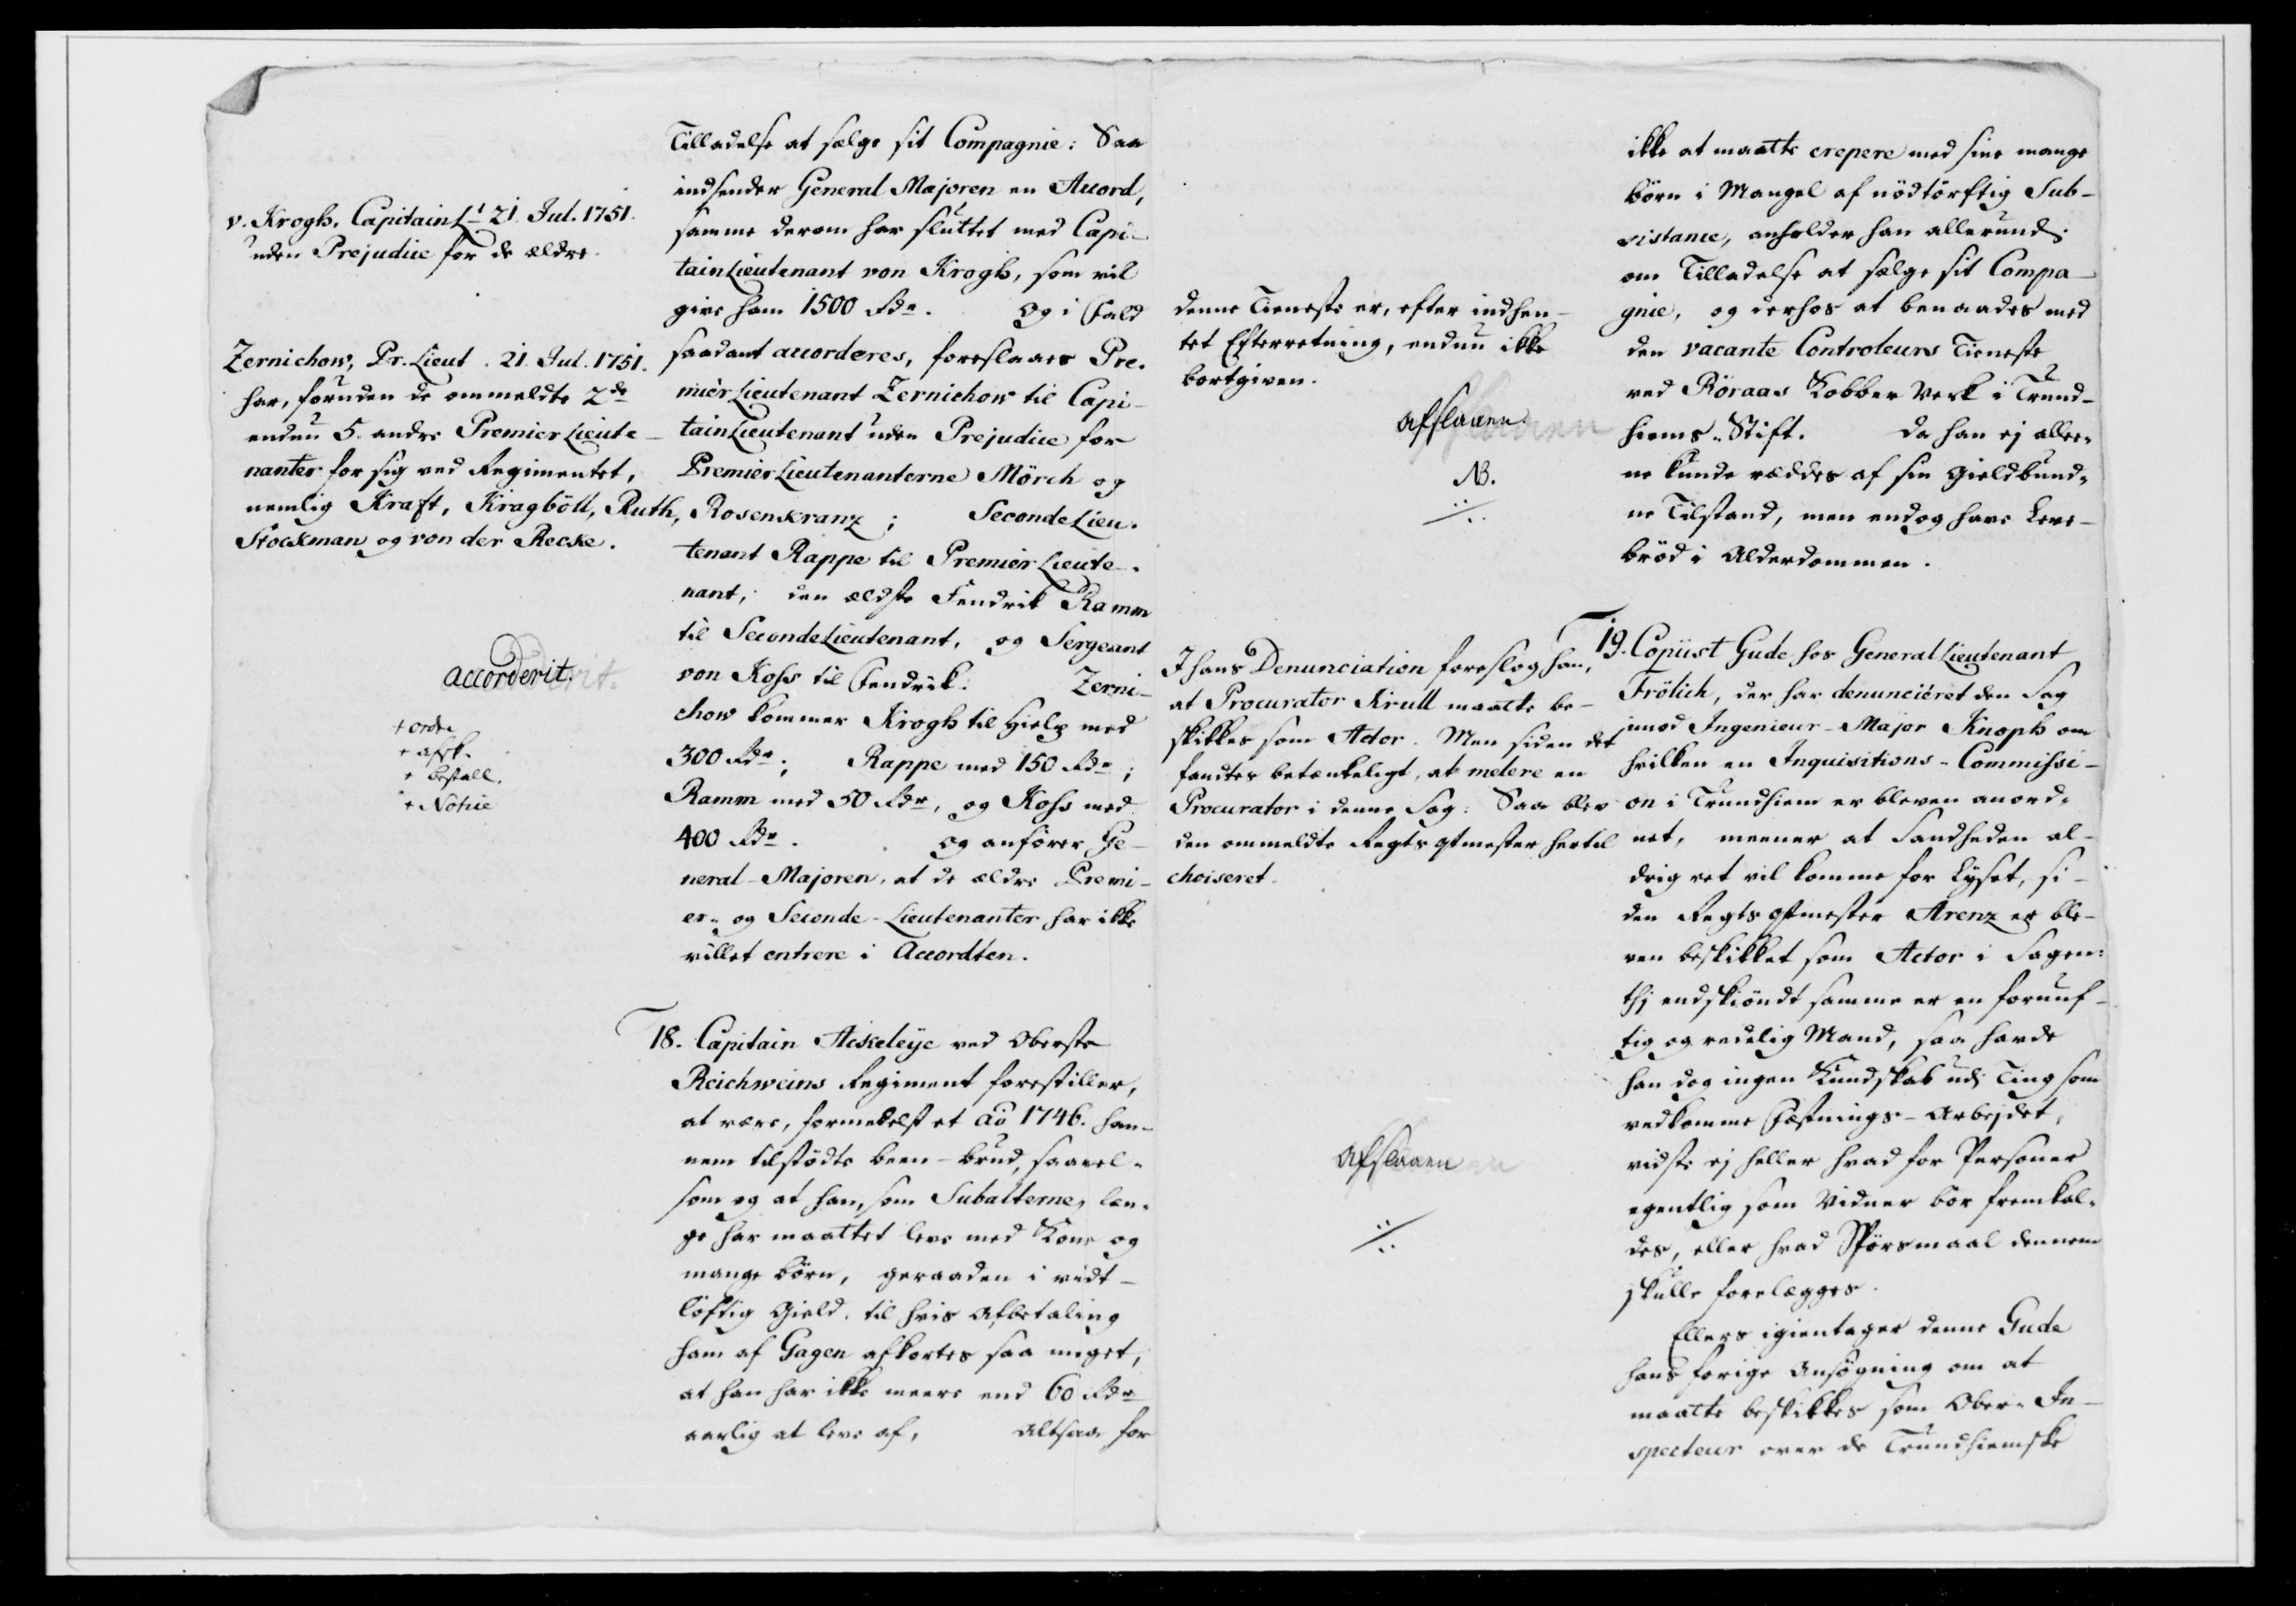 v. Krogh, Capitain Lt 21 Jul. 1751.
uden Prejudice for de ældre.
Zernichow, Pr. Lieut. 21 Jul. 1751.
har, foruden de ommeldte 2de
endnu 5. andre Premier Lieute-
nanter for sig ved Regimentet,
nemlig Kraft, Kragböll, Ruth,
Stockman og von der Recke.
accorderit.
+ ordre
+ afsk.
+ bestall.
+ Notice
Tilladelse at sælge sit Compagnie: Saa
indsender General Majoren en Accord,
samme derom har sluttet med Capi-
tain Lieutenant von Krogh, som vil
give ham 1500 Rdr. Og i Fald
saadant accorderes, foreslaaes Pre-
mier Lieutenant Zernichow til Capi-
tain Lieutenant uden Prejudice for
Premier Lieutenanterne Mörch og
Rosenkranz; Seconde Lieu-
tenant Rappe til Premier Lieute-
nant; den ældste Fendrik Ramm
til Seconde Lieutenant, og Sergeant
von Koss til Fendrik. Zerni-
chow kommer Krogh til Hielp med
300 Rdr; Rappe med 150 Rdr;
Ramm med 50 Rdr, og Koss med
400 Rdr. Og anfører Ge-
neral-Majoren, at de ældre Premi-
er- og Seconde-Lieutenanter har ikke
villet entrere i Accordten.
18. Capitain Ackeleye ved Oberste
Reichweins Regiment forestiller,
at være, formedelst et Ao 1746. han-
nem tilstødte been-brud, saavel-
som og at han, som Subalterne, læn-
ge har maattet leve med Kone og
mange børn, geraaden i vidt-
løftig Gield, til hvis Afbetaling
ham af Gagen afkortes saa meget,
at han har ikke meere end 60 Rdr
aarlig at leve af, altsaa for
denne Tieneste er, efter indhen-
tet Efterretning, endnu ikke
bortgiven.
afslaaen
NB.
I hans Denunciation foreslog han,
at Procurator Krull maatte be-
skikkes som Actor. Men siden det
fandtes betænkeligt, at melere en
Procurator i denne Sag: Saa blev
den ommeldte Regts qtmester hertil
choiseret.
Afslaaen
ikke at maatte crepere med sine mange
børn i Mangel af nødtørftig Sub-
sistance, anholder han allerund:
om Tilladelse at sælge sit Compa-
gnie, og derhos at benaades med
den vacante Controleurs Tieneste
ved Röraas Kobber Verk i Trund-
hiems-Stift. Da han ej alle-
ne kunde reddes af sin gieldbund-
ne Tilstand, men endog have Leve-
brød i Alderdommen.
19. Copiist Gude hos General Lieutenant
Frölich, der har denunciéret den Sag
imod Ingenieur-Major Knoph om
hvilken en Inquisitions-Commissi-
on i Trundhiem er bleven anord-
net, meener at Sandheden al-
drig ret vil komme for Lyset, si-
den Regts qtmester Arenz er ble-
ven beskikket som Actor i Sagen:
thj endskiøndt samme er en fornuf-
tig og redelig Mand, saa havde
han dog ingen Kundskab udi Ting som
vedkomme Fæstnings-Arbejdet,
vidste ej heller hvad for Personer
egentlig som Vidner bør fremkal-
des, eller hvad Spørsmaal dennem
skulle forelægges.
Ellers igientager denne Gude
hans forige Ansøgning om at
maatte beskikkes som Ober-In-
specteur over de Trundhiemske